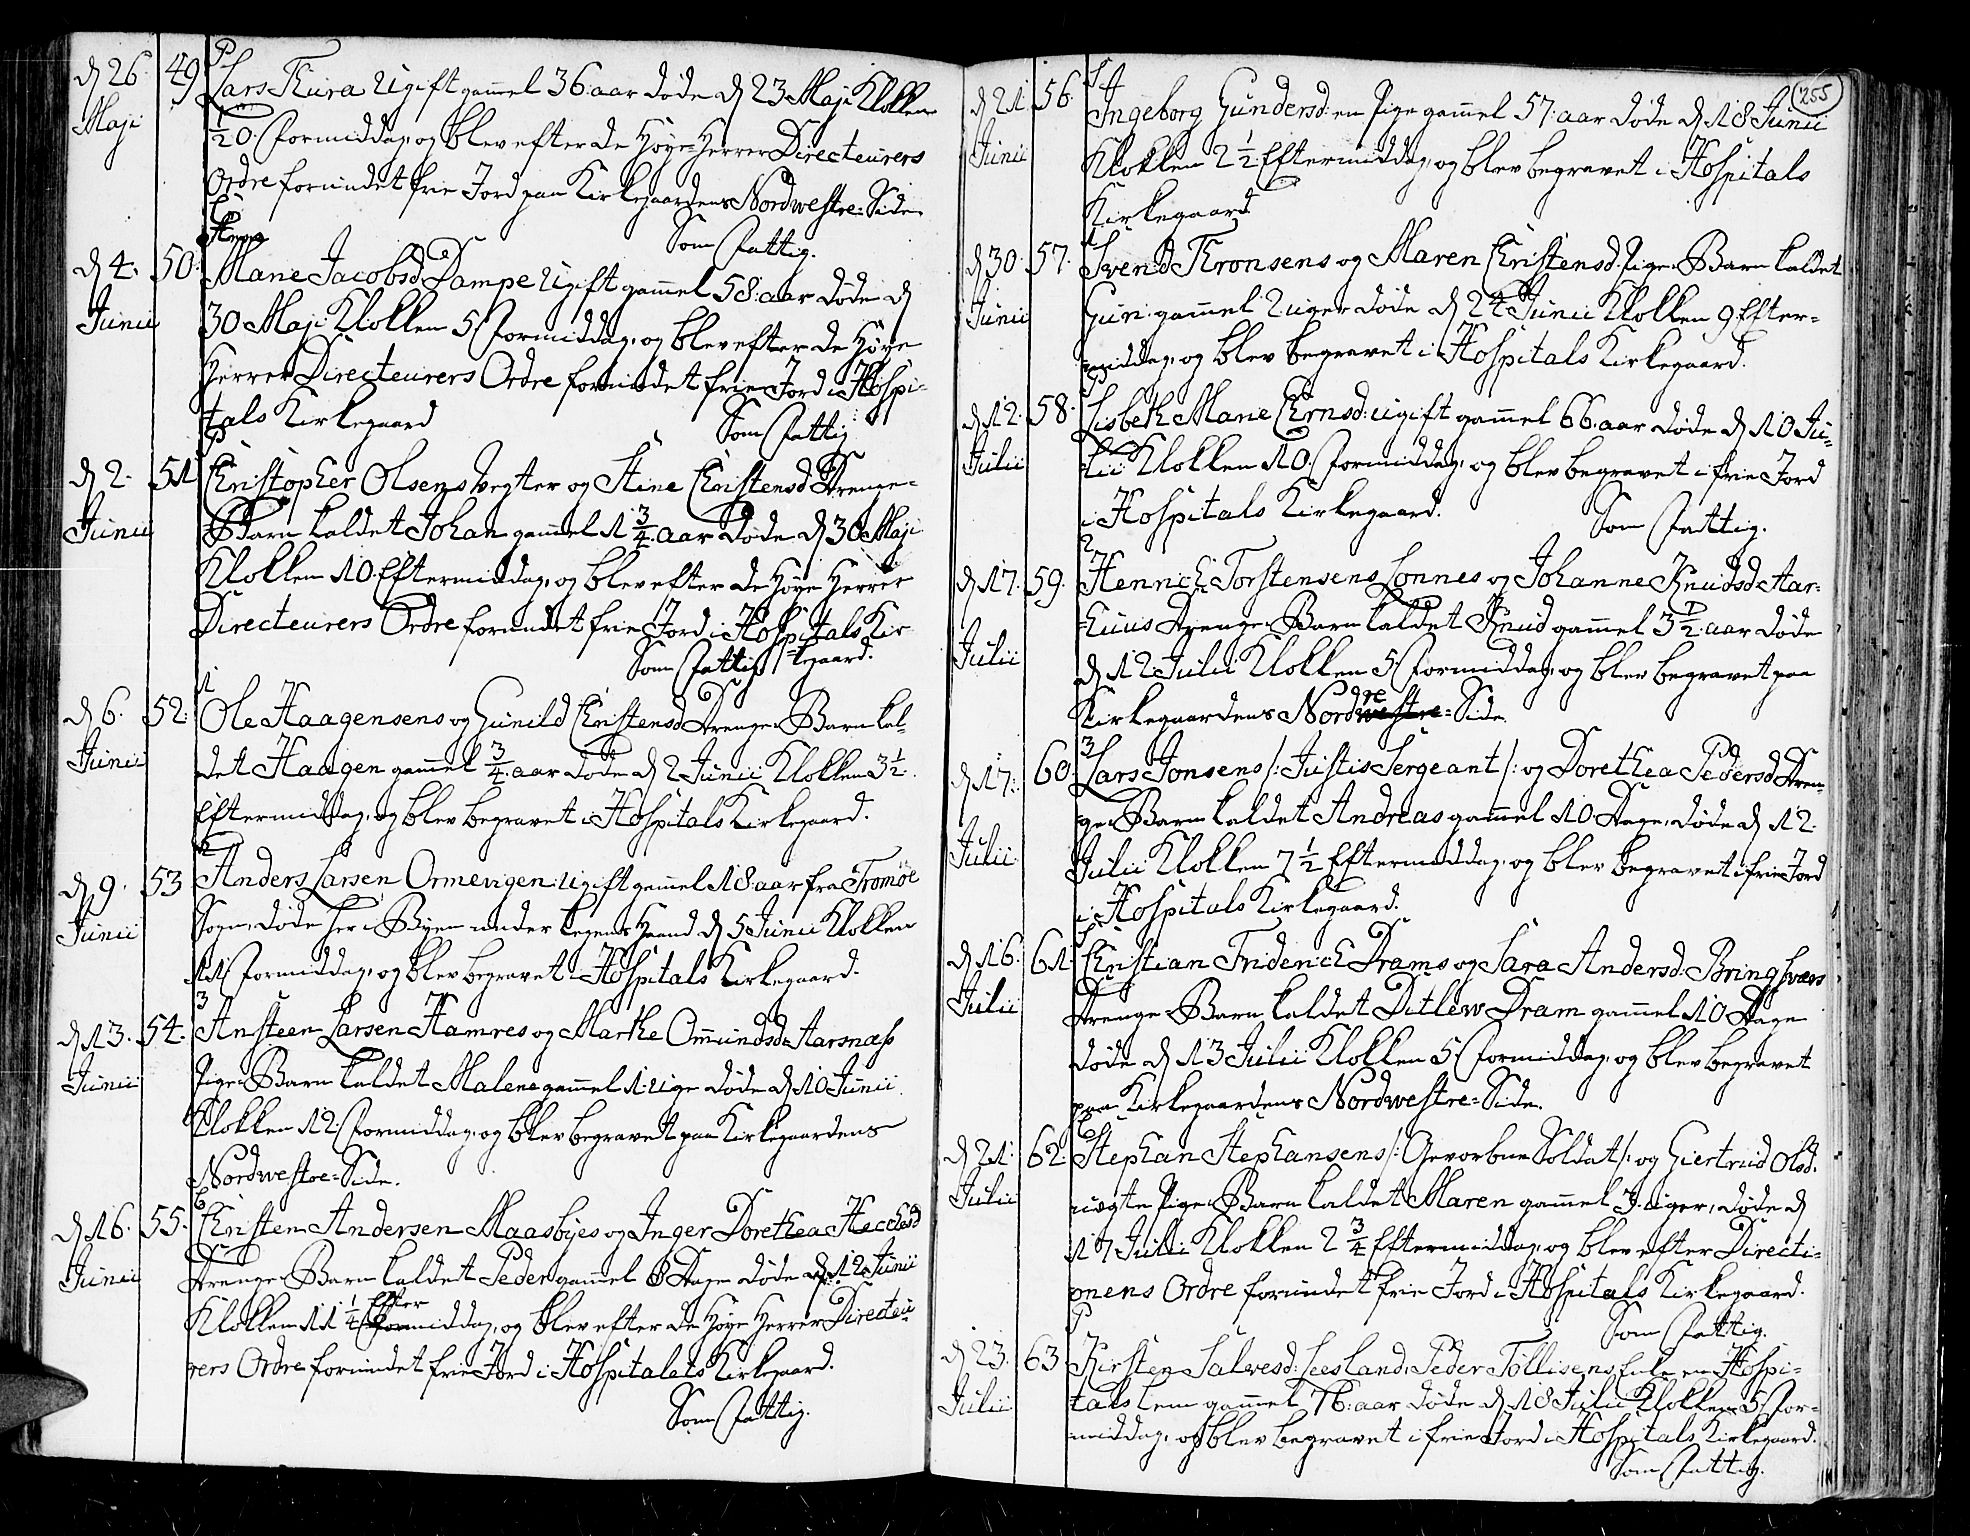 d 26. Maji 49 Lars Thura Ugift gammel 36. aar døde d 23 Maji Klokken
½ 0. Formiddag, og blev efter de Høye Herrer Directeurers
Ordre forundet frie Jord paa Kirkegaardens Nordwestre-Side
Som Fattig.
d 4. Junii 50. Mane Jacobsd Dampe Ugift gammel 58. aar døde d
30 Maji Klokken 5. Formiddag, og blev efter de Høye
Herrer Directeurers Ordre forundet frie Jord i Hospi-
tals Kirkegaard
Som Fattig
d 2. Junii 51 Christopher Olsens Vegter og Stine Christensd Drenge-
Barn kaldet Johan gammel 1 ¾ aar døde d 30 Maji
Klokken 10. Eftermiddag, og blev efter de Høye Herrer
Directeurers Ordre forundet frie Jord i Hospitals Kir-
kegaard.
Som Fattig
d 6. Junii 52. Ole Haagensens og Gunild Christensd Drenge-Barn kal-
det Haagen gammel ¾ aar døde d 2 Junii Klokken 3 ½
Eftermiddag, og blev begravet i Hospitals Kirkegaard.
2
d 9. Junii 53 Anders Larsen Ormevigen Ugift gammel 18. aar fra Tromøe
Sogn, døde her i Byen under Legens Haand d 5 Junii Klokken
11 Formiddag, og blev begravet i Hospitals Kirkegaard.
3
d 13. Junii 54. Ansteen Larsen Hamres og Marthe Omundsd Aarsnæss
Pige-Barn kaldet Malene gammel 1. Uge døde d 10 Junii
Klokken 12. Formiddag, og blev begravet paa Kirkegaardens
Nordwestre-Side.
d 16. Junii 55. Christen Andersen Maasbyes og Inger Dorethea Hecchesd
Drenge-Barn kaldet Peder gammel 8 Dage døde d 12 Junii
Klokken 11 ¼ Eftermiddag, og blev efter de Høye Herrer Directeu-
rers Ordre forundet frie Jord i Hospitalets Kirkegaard.
Som Fattig.
255
d 21. Junii 56. Ingeborg Gundersd. en Pige gammel 57. aar døde d 18 Junii
Klokken 2 ½ Eftermiddag, og blev begravet i Hospitals
Kirkegaard
d 30. Junii 57. Svend Thronsens og Maren Christensd. Pige-Barn kaldet
Guri gammel 2 uger døde d 24 Junii Klokken 9 Efter-
middag, og blev begravet i Hospitals Kirkegaard.
d 12. Julii 58. Lisbeth Mane Ernsd. Ugift gammel 66. aar døde d 10 Ju-
lii Klokken 10. Formiddag, og blev begravet i frie Jord
i Hospitals Kirkegaard.
Som Fattig.
2
d 17. Julii 59. Henrich Torstensens Lonnes og Johanne Knudsd Aar-
huus Drenge-Barn kaldet Knud gammel 3 ½ aar døde
d 12 Julii Klokken 5 Formiddag, og blev begravet paa
Kirkegaardens Nordre-Side.
3
d 17. Julii 60. Lars Jonsens /: Justis Sergeant /: og Dorethea Pedersd Dren-
ge-Barn kaldet Andreas gammel 10 Dage, døde d 12
Julii Klokken 7 ½ Eftermiddag, og blev begravet i frie Jord
i Hospitals Kirkegaard.
d 16. Julii 61. Christian Friderich Drams og Sara Andersd. Bringsvær
Drenge-Barn kaldet Ditlew Dram gammel 10 Dage
døde d 13 Julii Klokken 5. Formiddag, og blev begravet
paa Kirkegaardens Nordwestre-Side.
d 21. Julii 62. Stephan Stephansens /: Gevorben Soldat /: og Giertrud Olsd.
uægte Pige-Barn kaldet Maren gammel 3. uger, døde d
17 Julii Klokken 2 ¾ Eftermiddag, og blev efter Directi-
onens Ordre forundet frie Jord i Hospitals Kirkegaard.
Som Fattig.
d 23. Julii 63 Kirsten Salvesd. Leesland, Peder Töllisens Enke en Hospi-
tals Lem gammel 76. aar døde d 18 Julii Klokken 5 For-
middag, og blev begravet i frie Jord i Hospitals Kirkegaard.
Som Fattig.